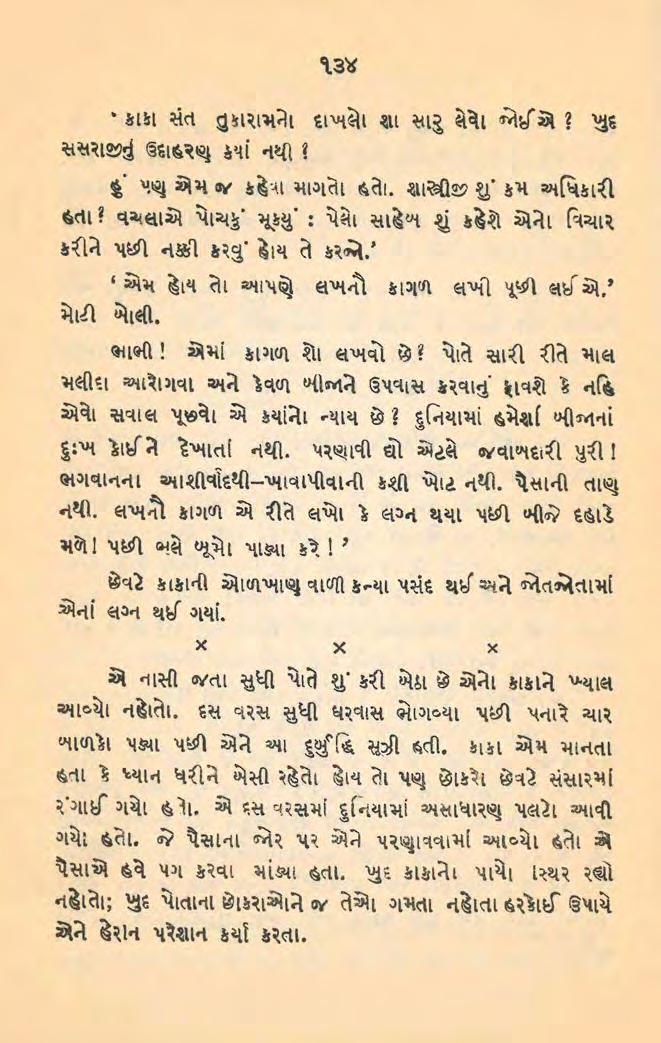 ૧૩૪
‘ કાકા સંત તુકારામનો દાખલો શા સારુ લેવો જોઈએ ? ખુદ
સસરાજીનું ઉદાહરણ ક્યાં નથી !
હું પણ એમ જ કહેવા માગતો હતો. શાસ્ત્રીજી શું કમ અધિકારી
હતા ? વચલાએ પોચકું મૂકયું : પેલો સાહેબ શું કહેશે એનો વિચાર
કરીને પછી નક્કી કરવું હોય તે કરજો.’
‘ એમ હોય તો આપણે લખનૌ કાગળ લખી પૂછી લઈએ.’
મોટી બોલી.
ભાભી ! એમાં કાગળ શો લખવો છે ? પોતે સારી રીતે માલ
મલીદા આરોગવા અને કેવળ બીજાને ઉપવાસ કરવાનું ફાવશે કે નહિ
એવો સવાલ પૂછવો એ કયાંનો ન્યાય છે ? દુનિયામાં હમેશાં બીજાનાં
દુઃખ કોઈને દેખાતાં નથી. પરણાવી દ્યો એટલે જવાબદારી પુરી !
ભગવાનના આશીર્વાદથી–ખાવાપીવાની કશી ખોટ નથી. પૈસાની તાણ
નથી. લખનૌ કાગળ એ રીતે લખો કે લગ્ન થયા પછી બીજે દહાડે
મળે ! પછી ભલે બૂમો પાડ્યા કરે ! ’
છેવટે કાકાની ઓળખાણ વાળી કન્યા પસંદ થઈ અને જોતજોતામાં
એનાં લગ્ન થઈ ગયાં.
× × ×
એ નાસી જતા સુધી પોતે શું કરી બેઠા છે એનો કાકાને ખ્યાલ
આવ્યો નહોતો. દસ વરસ સુધી ઘરવાસ ભોગવ્યા પછી પનારે ચાર
બાળકો પડ્યા પછી એને આ દુર્બુદ્ધિ સૂઝી હતી. કાકા એમ માનતા
હતા કે ધ્યાન ધરીને બેસી રહેતો હોય તો પણ છોકરો છેવટે સંસારમાં
રંગાઈ ગયો હતો. એ દસ વરસમાં દુનિયામાં અસાધારણ પલટો આવી
ગયો હતો. જે પૈસાના જોર પર એને પરણાવવામાં આવ્યો હતો એ
પૈસાએ હવે પગ કરવા માંડ્યા હતા. ખુદ કાકાનો પાયો સ્થિર રહ્યો
નહોતો; ખુદ પોતાના છોકરાઓને જ તેઓ ગમતા નહોતા હરકોઈ ઉપાયે
એને હેરાન પરેશાન કર્યા કરતા.